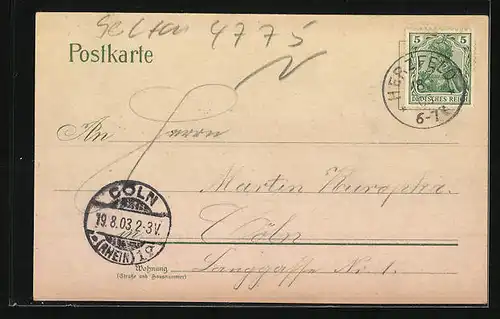 Selten 4775
Postkarte
5 5
DEUTSCHES REICH
HERZFELD
8
6-7
An Herrn
Martin
Cöln
Langgasse No 1.
CÖLN
19.8.03.2-3V.
(RHEIN)
Wohnung
(Straße und Hausnummer)